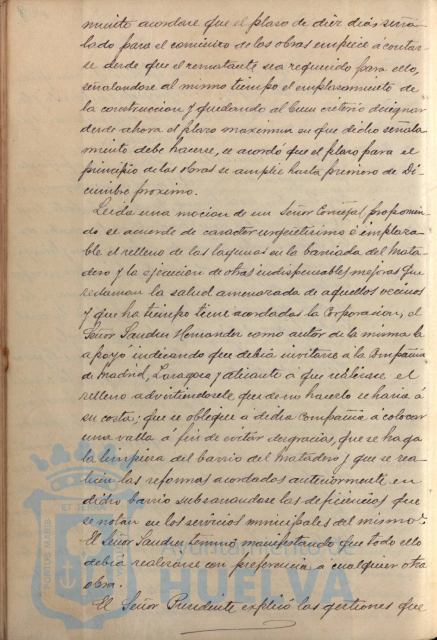 miento acordare que el plazo de diez dias seña-
lado para el comienzo de las obras empiece á contar-
se desde que el rematante sea requerido para ello,
señalandose al mismo tiempo el emplazamiento de
la construccion y quedando al buen criterio designar
desde ahora el plazo maximun en que dicho señala-
miento debe hacerse, se acordó que el plazo para el
principio de las obras se amplie hasta primero de Di-
ciembre proximo.
Leida una mocion de un Señor Concejal proponien-
do se acuerde de caracter urgentisimo é inaplaza-
ble el relleno de las lagunas en la barriada del Mata-
dero y la ejecucion de otras indispensables mejoras que
reclaman la salud amenazada de aquellos vecinos
y que ha tiempo tiene acordadas la Corporacion, el
Señor Sanchez Hernandez como autor de la misma la
apoyó indicando que debia invitarse á la Compañia
de Madrid, Zaragoza y Alicante á que rellenase el
relleno advirtiendosele que de no hacerlo se haria á
su costa; que se obligue á dicha Compañia á colocar
una valla á fin de evitar desgracias, que se haga
la limpieza del barrio del Matadero y que se rea-
licen las reformas acordadas anteriormente en
dicho barrio subsanandose las deficiencias que
se notan en los servicios municipales del mismo.
El Señor Sanchez terminó manifestando que todo ello
debia realizarse con preferencia á cualquier otra
obra.
El Señor Presidente explicó las gestiones que
PORTUS MARIS
ET TERRÆ
Ayuntamiento de
HUELVA